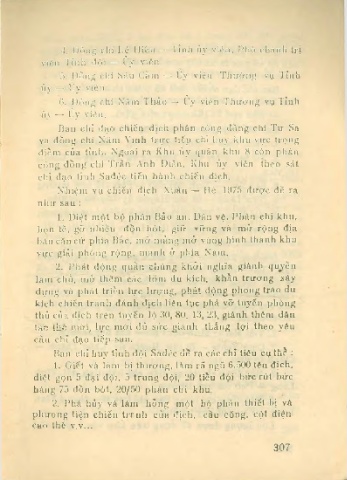 4. Đồng chí Lê Hiền — Tỉnh ủy viên, Phó chính trị
viên Tỉnh đội — Ủy viên.
5. Đồng chí Sáu Cam — Ủy viên Thường vụ Tỉnh
ủy — Ủy viên.
6. Đồng chí Năm Thảo — Ủy viên Thường vụ Tỉnh
ủy — Ủy viên.
Ban chỉ đạo chiến dịch phân công đồng chí Tư Sa
và đồng chí Năm Vinh trực tiếp chỉ huy khu vực trọng
điểm của tỉnh. Ngoài ra Khu ủy quân khu 8 còn phân
công đồng chí Trần Anh Điền, Khu ủy viên theo sát
chỉ đạo tỉnh Sađéc tiến hành chiến dịch.
Nhiệm vụ chiến dịch Xuân — Hè 1975 được đề ra
như sau :
1. Diệt một bộ phận Bảo an, Dân vệ, Phân chi khu,
bọn tề, gỡ nhiều đồn bót, giữ vững và mở rộng địa
bàn căn cứ phía Bắc, mở mảng mở vùng hình thành khu
vực giải phóng rộng, mạnh ở phía Nam.
2. Phát động quần chúng khởi nghĩa giành quyền
làm chủ, mở thêm các lõm du kích, khẩn trương xây
dựng và phát triển lực lượng, phát động phong trào du
kích chiến tranh đánh địch liên tục phá vỡ tuyến phòng
thủ của địch trên tuyến lộ 30, 80, 13, 23, giành thêm dân
tạo thế mới, lực mới đủ sức giành thắng lợi theo yêu
cầu chỉ đạo tiếp sau.
Ban chỉ huy tỉnh đội Sađéc đề ra các chỉ tiêu cụ thể :
1. Giết và làm bị thương, làm rã ngũ 6.500 tên địch,
diệt gọn 5 đại đội, 5 trung đội, 20 tiểu đội bức rút bức
hàng 75 đồn bót, 20/50 phân chi khu.
2. Phá hủy và làm hỏng một bộ phận thiết bị và
phương tiện chiến tranh của địch, cầu cống, cột điện
cao thế v.v...
307